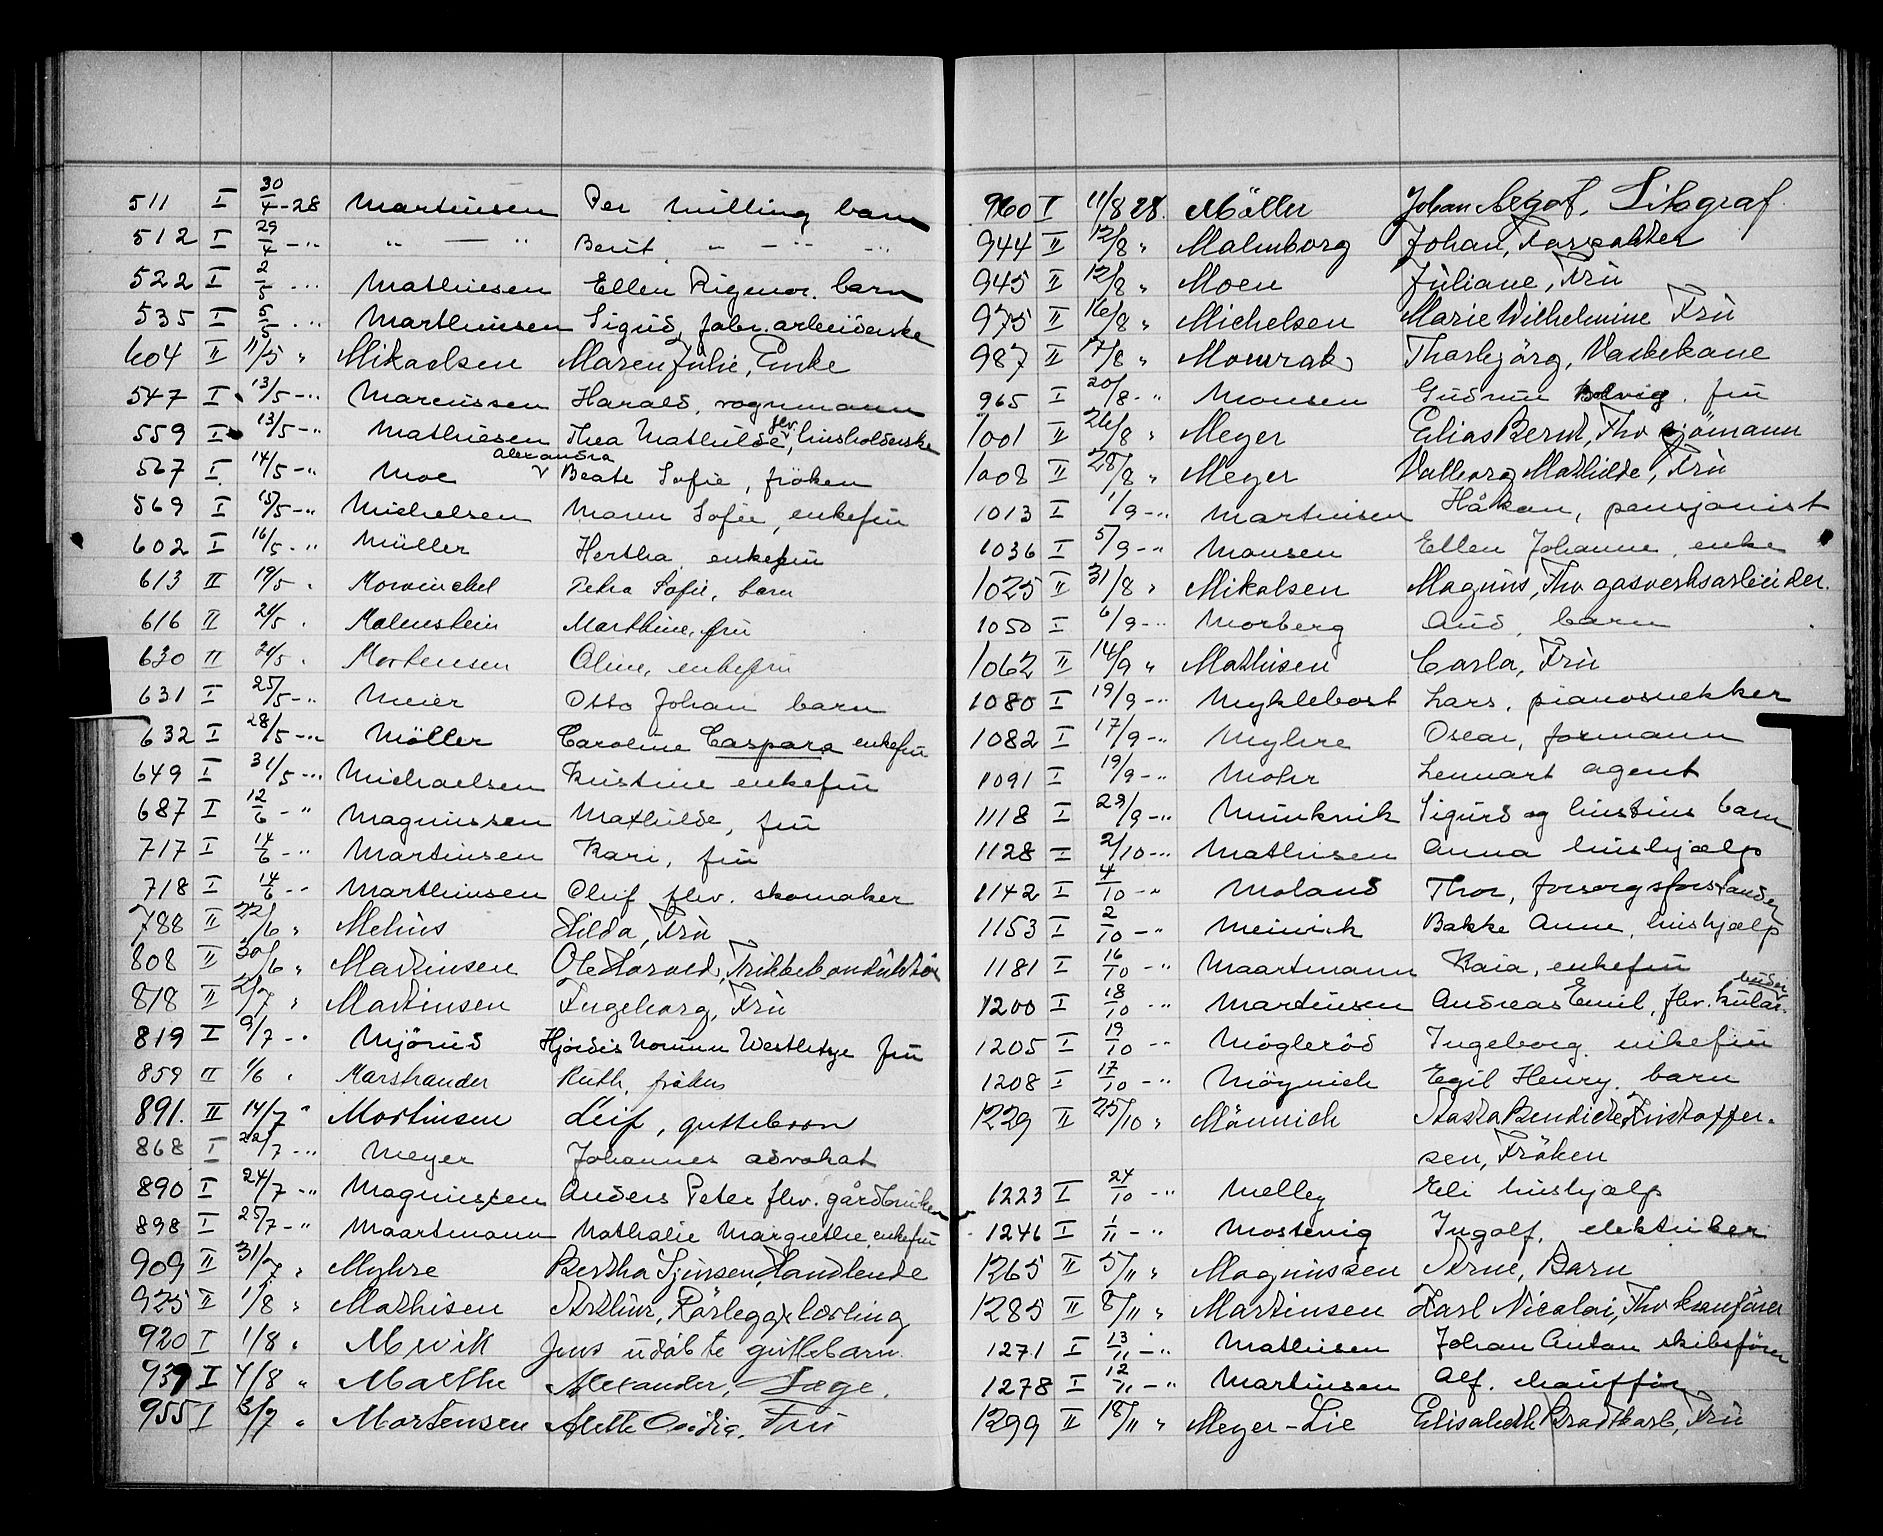 511 I 30/4-28 Martinsen Per Willing barn
512 I 29/4-" " — " Berit " - " - "
522 I 2/5 -" Mathiesen Ellen Rigmor. barn
535 I 5/5 -" Marthinsen Sigrid, fabr. arbeiderske
604 II 11/5 " Mikaelsen Maren Julie, Enke
547 I 13/5-" Marcussen Harald, vognmann
559 I 13/5-" Mathiesen Thea Mathilde, flv. husholderske
567 I 14/5-" Moe Alexandra Beate Sofie, fröken
569 I 15/5-" Michelsen Maren Sofie, enkefru
602 I 16/5-" Müller Hertha enkefru
613 II 19/5 " Mowinckel Petra Sofie, barn
616 II 24/5 " Malmstein Marthine, fru
630 II 24/5 " Mortensen Oline, enkefru
631 I 25/5-" Meier Otto Johan barn
632 I 28/5-" Möller Caroline Caspara enkefru
649 I 31/5-" Michaelsen Kristine enkefru
687 I 12/6 -" Magnussen Mathilde, fru
717 I 14/6 -" Martinsen Kari, fru
718 I 14/6 -" Marthinsen Oluf flv. skomaker
788 II 22/6 " Melius Hilda, Frü
808 II 30/6 " Martinsen Ole Harald, Trikkekondüktör
818 II 2/7 " Martinsen Ingeborg, Frü
819 I 9/7 -" Mjörud Hjördis Norunn Westlitye fru
859 II 1/6 " Marstrander Ruth, fröken
891. II 14/7 " Mortinsen Leif, guttebarn
868 I 22/7 -" Meyer Johannes advokat
890 I 24/7 -" Magnussen Anders Peter flv. gårdbruker
898 I 25/7 -" Maartmann Nathalie Margrethe, enkefru
909 II 31/7 " Myhre Bertha Sjursen, Handlende
925 II 1/8 " Mathisen Arthur, Rörleggerlærling
920 I 1/8 " Mevik Jens udöbte guttebarn.
939 I 4/8 " Malthe Alexander, Læge.
955 I 3/7 " Mortensen Alette Ovidia, Fru
960 I 11/8 28. Möller Johan Litograf
944 II 12/8 " Malmborg Johan,
945 II 12/8 " Moen Jüliane, Frü
975 II 16/8 " Michelsen Marie Wilhelmine Frü
987 II 17/8 " Mowrak Thorbjörg, Vaskekone
965 I 20/8 -" Monsen Gudrun Bolvig. fru
1001 II 26/8 " Meyer Elias Bernt, Fhv sjömann
1008 II 28/8 " Meyer Valborg Mathilde, Frü
1013 I 1/9 -" Martinsen Håkon, pensjonist
1036 I 5/9 -" Monsen Ellen Johanne, enke
1025 II 31/8 " Mikalsen Magnus, Fhv gasverksarbeider.
1050 I 6/9 -" Morberg Aud, barn
1062 II 14/9 " Mathisen Carla, Frü
1080 I 19/9 -" Myklebost Lars, pianosnekker
1082 I 17/9 -" Myhre Oscar, formann
1091 I 19/9 -" Mohr Lennart agent
1118 I 29/9 -" Munkvik Sigurd og hustrus barn
1128 I 2/10 -" Mathisen Anna hushjælp
1142 I 4/10 -" Moland Thor, forsorgsforstander
1153 I 2/10 -" Meinich Bakke Anne, hushjælp
1181 I 16/10 -" Maartmann Kaia, enkefru
1200 I 18/10 -" Martinsen Andreas Emil, flv.
1205 I 19/10 -" Mögleröd Ingeborg enkefru
1208 I 17/10 -" Möynich Egil Henry. barn
1229 II 25/10 " Männich Aasta Bendicte Kristoffer-
sen, Fröken
1223 I 24/10 -" Melley Eli hushjælp
1246 I 1/11 -" Mostervig Ingolf, elektriker
1265 II 5/11 " Magnussen Arne, Barn
1285 II 8/11 " Martinsen Karl Nicolai, Fhv kranförer
1271 I 13/11 -" Mathisen Johan Anton skibsförer
1278 I 12/11 -" Martinsen Alf. chaufför
1299 II 18/11 " Meyer-Lie Elisabeth Bradtkorb, Frü